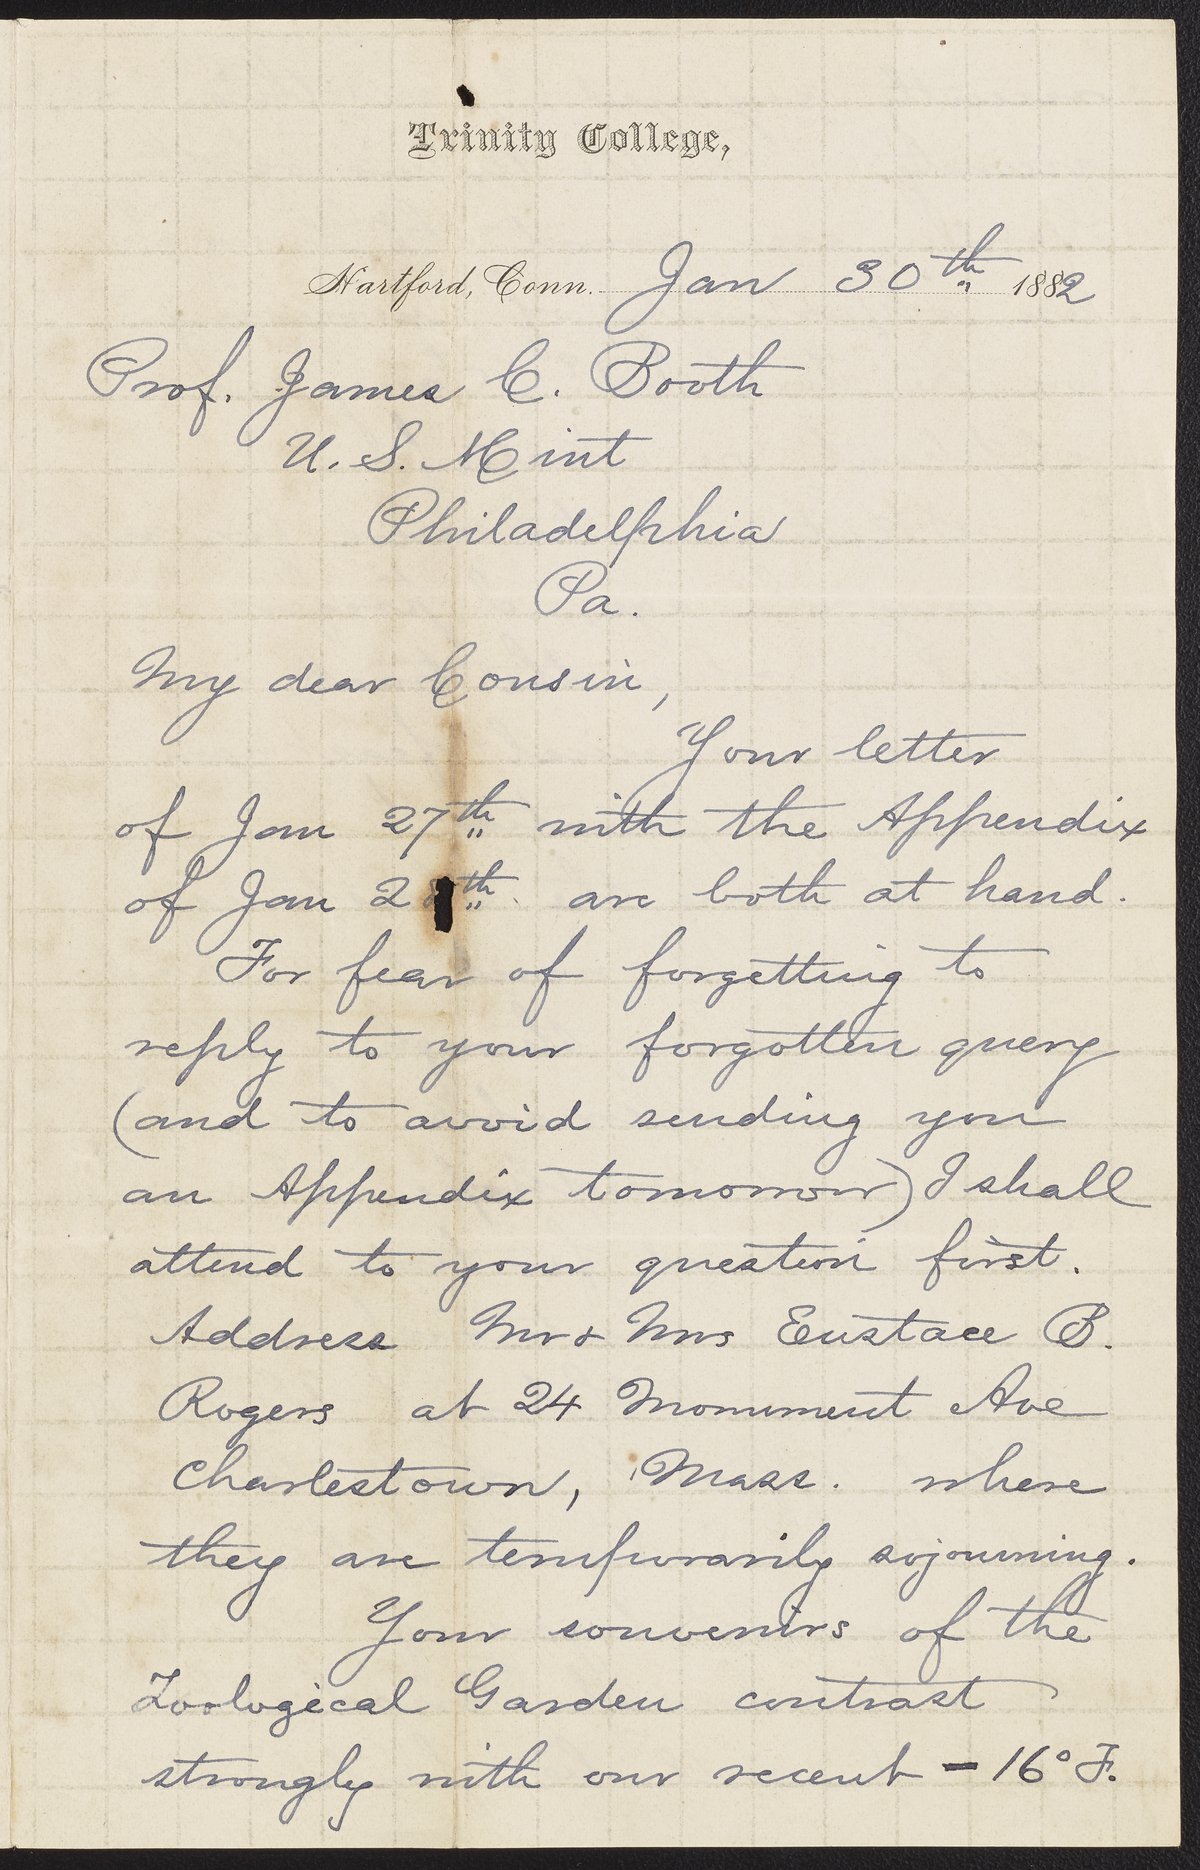 Trinity College,
Hartford, Conn. Jan 30th 1882
Prof. James C. Booth
U. S. Mint
Philadelphia
Pa.
My dear Cousin,
Your letter
of Jan 27th with the Appendix
of Jan 28th are both at hand.
For fear of forgetting to
reply to your forgotten query
(and to avoid sending you
an Appendix tomorrow) I shall
attend to your question first.
Address Mr & Mrs Eustace B.
Rogers at 24 Monument Ave
Charlestown, Mass. where
they are temporarily sojourning.
Your souvenirs of the
Zoological Garden contrast
strongly with our recent - 16° F.